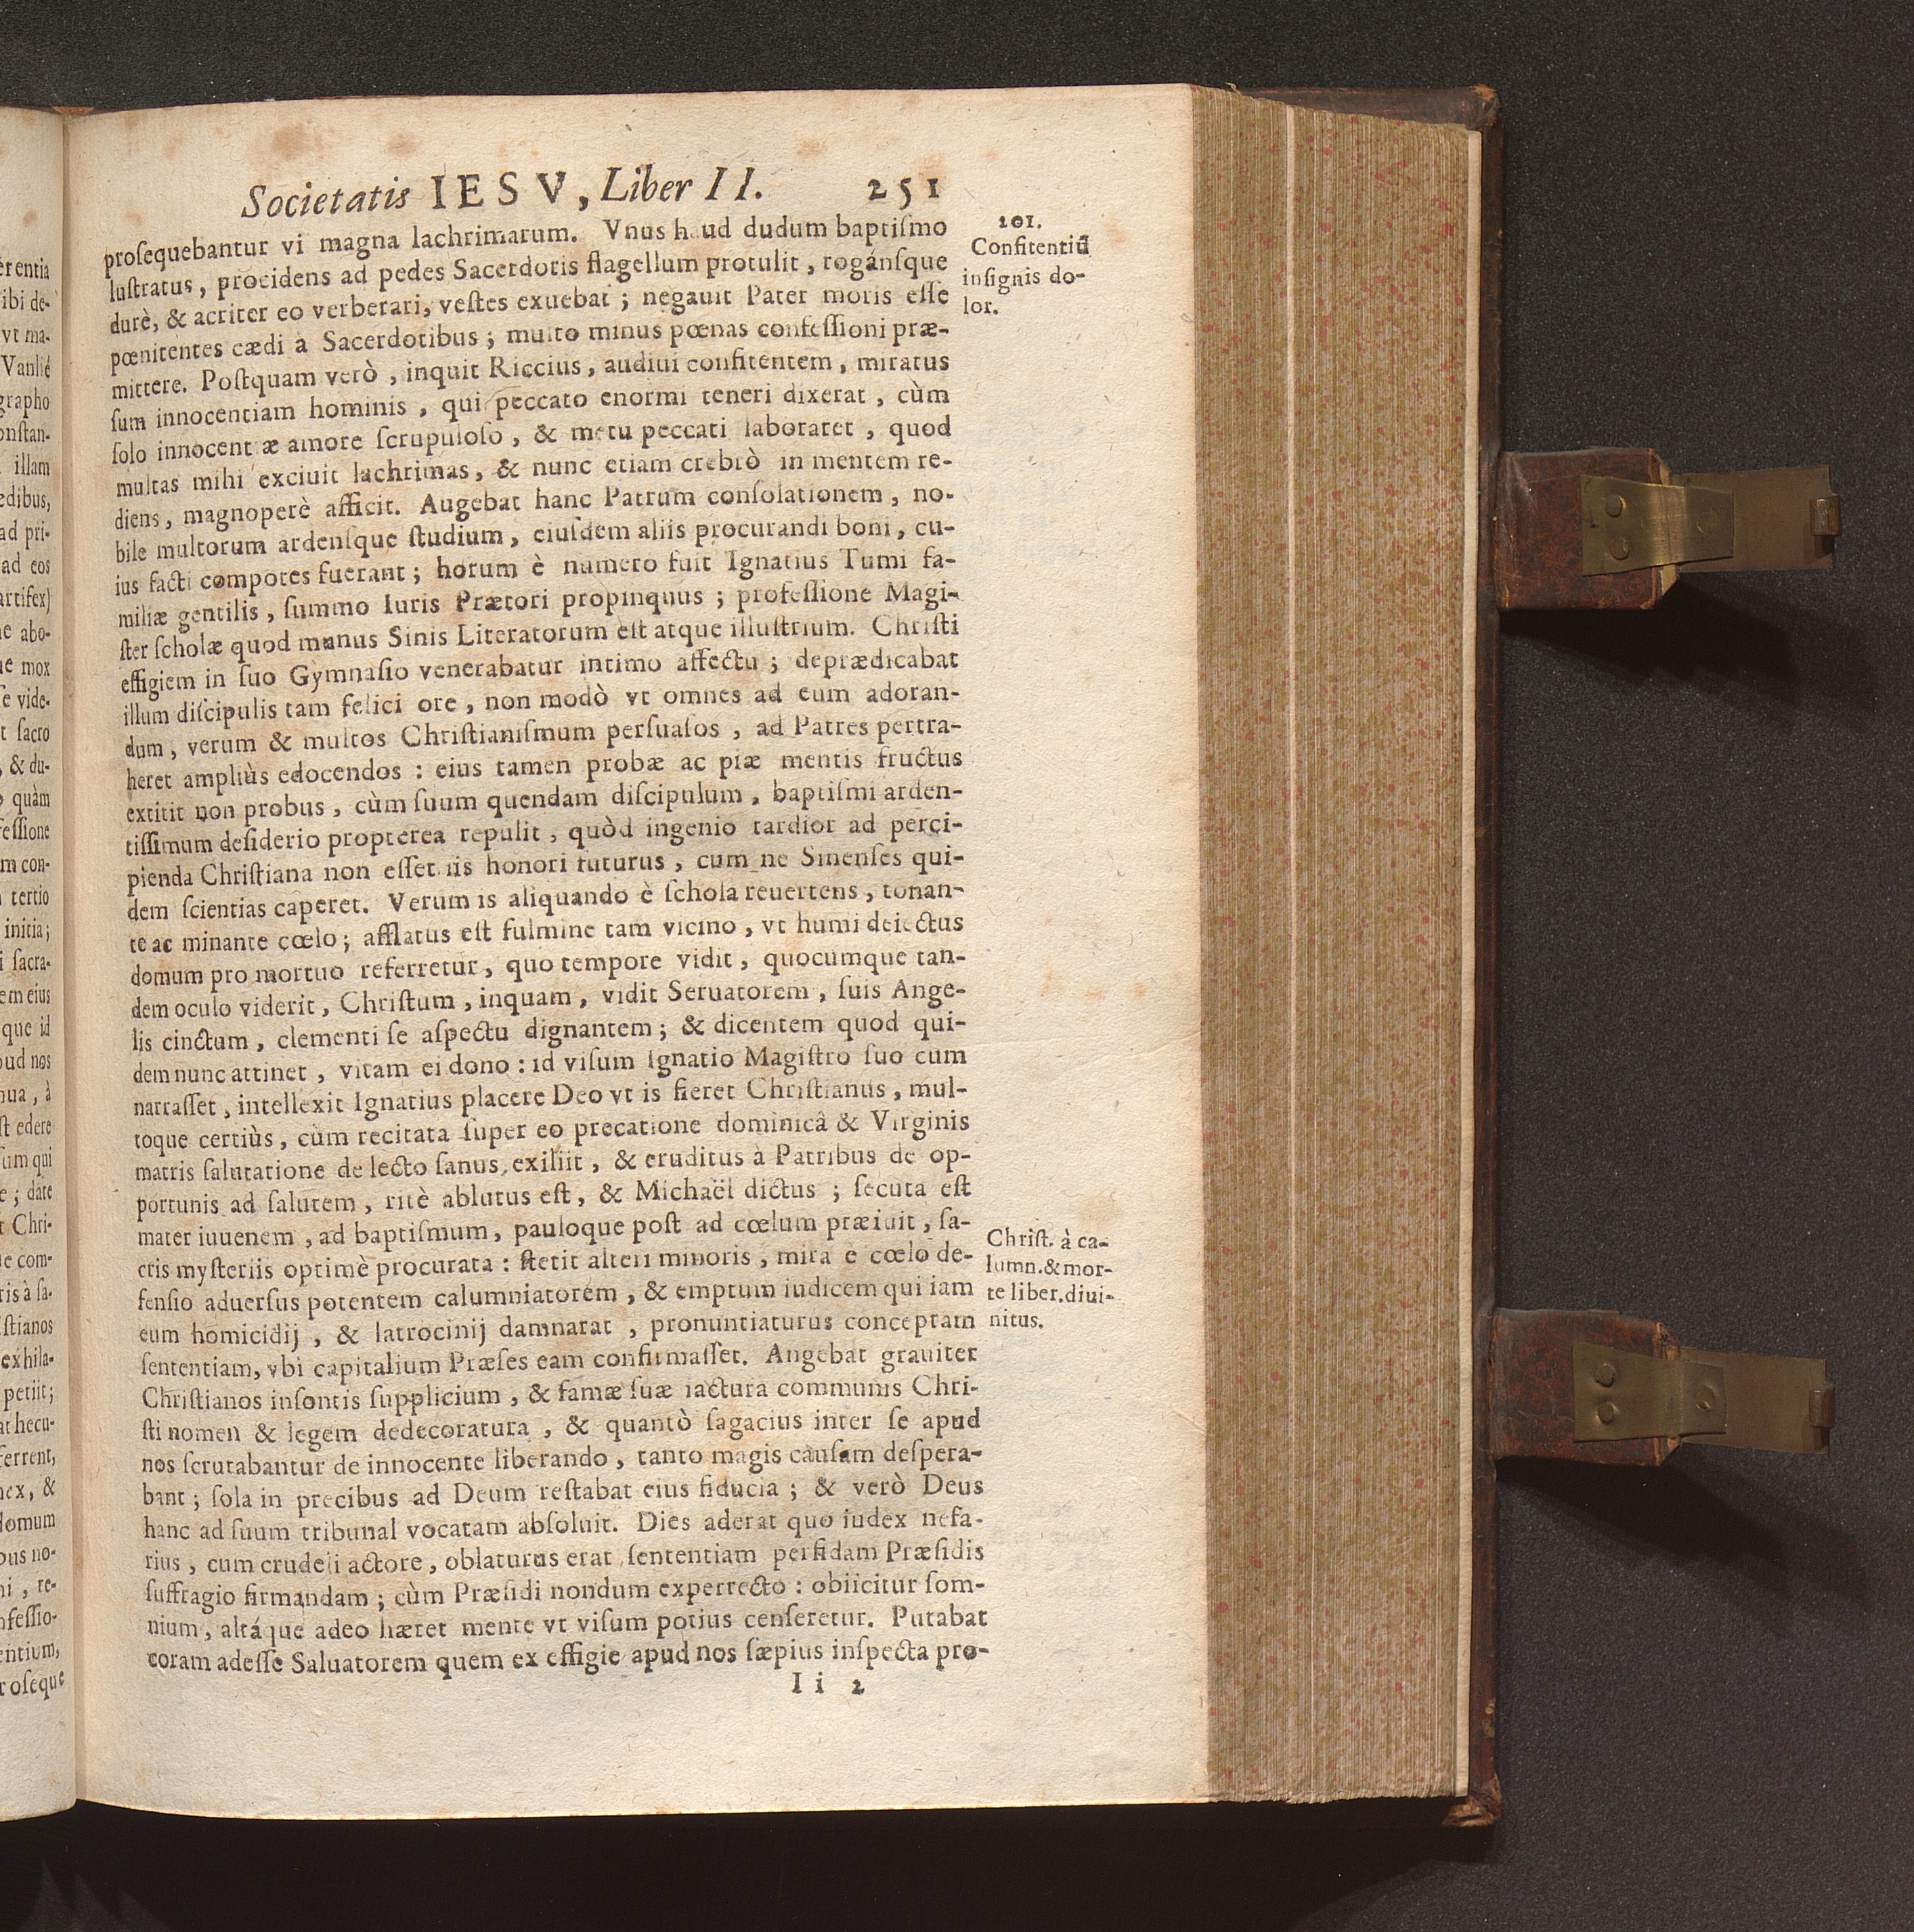 Societatis IESV, Liber II. 251
proſequebantur vi magna lachrimarum. Vnus haud dudum baptiſmo
luſtratus, procidens ad pedes Sacerdotis flagellum protulit, rogánſque
durè, & acriter eo verberari, veſtes exuebat; negauit Pater moris eſſe
pœnitentes cædi a Sacerdotibus; multo minus pœnas confeſſioni præ-
mittere. Poſtquam verò, inquit Riccius, audiui confitentem, miratus
ſum innocentiam hominis, qui peccato enormi teneri dixerat, cùm
ſolo innocentæ amore ſcrupuloſo, & metu peccati laboraret, quod
multas mihi exciuit lachrimas, & nunc etiam crebrò in mentem re-
diens, magnoperè afficit. Augebat hanc Patrum conſolationem, no-
bile multorum ardenſque ſtudium, eiuſdem aliis procurandi boni, cu-
ius facti compotes fuerant; horum è numero fuit Ignatius Tumi fa-
miliæ gentilis, ſummo Iuris Prætori propinquus; profeſſione Magi-
ſter ſcholæ quod munus Sinis Literatorum eſt atque illuſtrium. Chriſti
effigiem in ſuo Gymnaſio venerabatur intimo affectu; deprædicabat
illum diſcipulis tam felici ore, non modò vt omnes ad eum adoran-
dum, verum & multos Chriſtianiſmum perſuaſos, ad Patres pertra-
heret ampliùs edocendos: eius tamen probæ ac piæ mentis fructus
extitit non probus, cùm ſuum quendam diſcipulum, baptiſmi arden-
tiſſimum deſiderio propterea repulit, quòd ingenio tardior ad perci-
pienda Chriſtiana non eſſet iis honori futurus, cum ne Sinenſes qui-
dem ſcientias caperet. Verum is aliquando è ſchola reuertens, tonan-
te ac minante cœlo; afflatus eſt fulmine tam vicino, vt humi deiectus
domum pro mortuo referretur, quo tempore vidit, quocumque tan-
dem oculo viderit, Chriſtum, inquam, vidit Seruatorem, ſuis Ange-
lis cinctum, clementi ſe aſpectu dignantem; & dicentem quod qui-
dem nunc attinet, vitam ei dono: id viſum Ignatio Magiſtro ſuo cum
narraſſet, intellexit Ignatius placere Deo vt is fieret Chriſtianus, mul-
toque certiùs, cùm recitata ſuper eo precatione dominicâ & Virginis
matris ſalutatione de lecto ſanus exiliit, & eruditus à Patribus de op-
portunis ad ſalutem, ritè ablutus eſt, & Michaël dictus; ſecuta eſt
mater iuuenem, ad baptiſmum, pauloque poſt ad cœlum præiuit, ſa-
cris myſteriis optimè procurata: ſtetit alteri minoris, mira è cœlo de-
fenſio aduerſus potentem calumniatorem, & emptum iudicem qui iam
eum homicidij, & latrocinij damnarat, pronuntiaturus conceptam
ſententiam, vbi capitalium Præſes eam confirmaſſet. Angebat grauiter
Chriſtianos inſontis ſupplicium, & famæ ſuæ iactura communis Chri-
ſti nomen & legem dedecoratura, & quantò ſagacius inter ſe apud
nos ſcrutabantur de innocente liberando, tanto magis cauſam deſpera-
bant; ſola in precibus ad Deum reſtabat eius fiducia; & verò Deus
hanc ad ſuum tribunal vocatam abſoluit. Dies aderat quo iudex nefa-
rius, cum crudeli actore, oblaturus erat ſententiam perfidam Præſidis
ſuffragio firmandam; cùm Præſidi nondum experrecto: obiicitur ſom-
nium, altáque adeo hæret mente vt viſum potius cenſeretur. Putabat
coram adeſſe Saluatorem quem ex effigie apud nos ſæpius inſpecta pro-
Ii 2
201.
Confitentiũ
inſignis do-
lor.
Chriſt. à ca-
lumn. & mor-
te liber. diui-
nitus.
erentia
ibi de-
vt ma-
Vanlié
grapho
onſtan-
illam
edibus,
ad pri-
ad eos
artifex)
ne abo-
ue mox
ſe vide-
t ſacro
, & du-
o quàm
feſſione
m con-
tertio
initia;
i ſacra-
em eius
que id
oud nos
nua, à
ſt edere
ſum qui
e; date
t Chri-
e com-
ris à ſa-
ſtianos
exhila-
petiit;
at hecu-
ferrent,
nex, &
domum
bus no-
ni, re-
nfeſſio-
entium,
roſeque